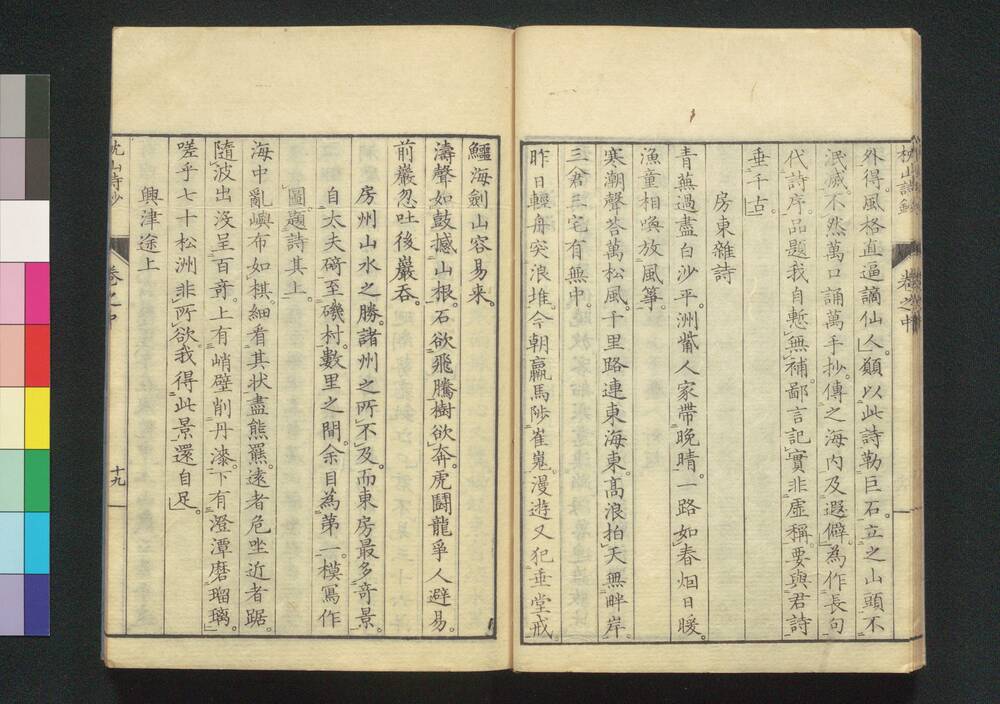 外得。風格直逼謫仙人。願以此詩勒巨石。立之山頭不
泯滅。不然萬口誦萬手抄。傳之海内及遐僻。為作長句
代詩序。品題我自慙無補。鄙言記實非虚稱。要與君詩
垂千古。
房東雜詩
青蕪過盡白沙平。洲觜人家帶晚晴。一路如春烟日暖。
漁童相喚放風箏。
寒潮聲答萬松風。千里路連東海東。高浪拍天無畔岸。
三君三宅有無中。
昨日輕舟突浪堆。今朝羸馬陟崔嵬。漫遊又犯垂堂戒。
卷之中
鱷海劍山容易来。
濤聲如鼓撼山根。石欲飛騰樹欲奔。虎鬪龍爭人避易。
前巖忽吐後巖吞。
房州山水之勝。諸州之所不及。而東房最多奇景。
自太夫碕至磯村。數里之間。余目為第一。模寫作
圖。題詩其上。
海中亂嶼布如棋。細看其状盡熊羆。遠者危坐近者踞。
隨波出没呈百奇。上有峭壁削丹漆。下有澄潭磨瑠璃。
嗟乎七十松洲非所欲。我得此景還自足。
興津途上
枕山詩鈔
卷之中
十九